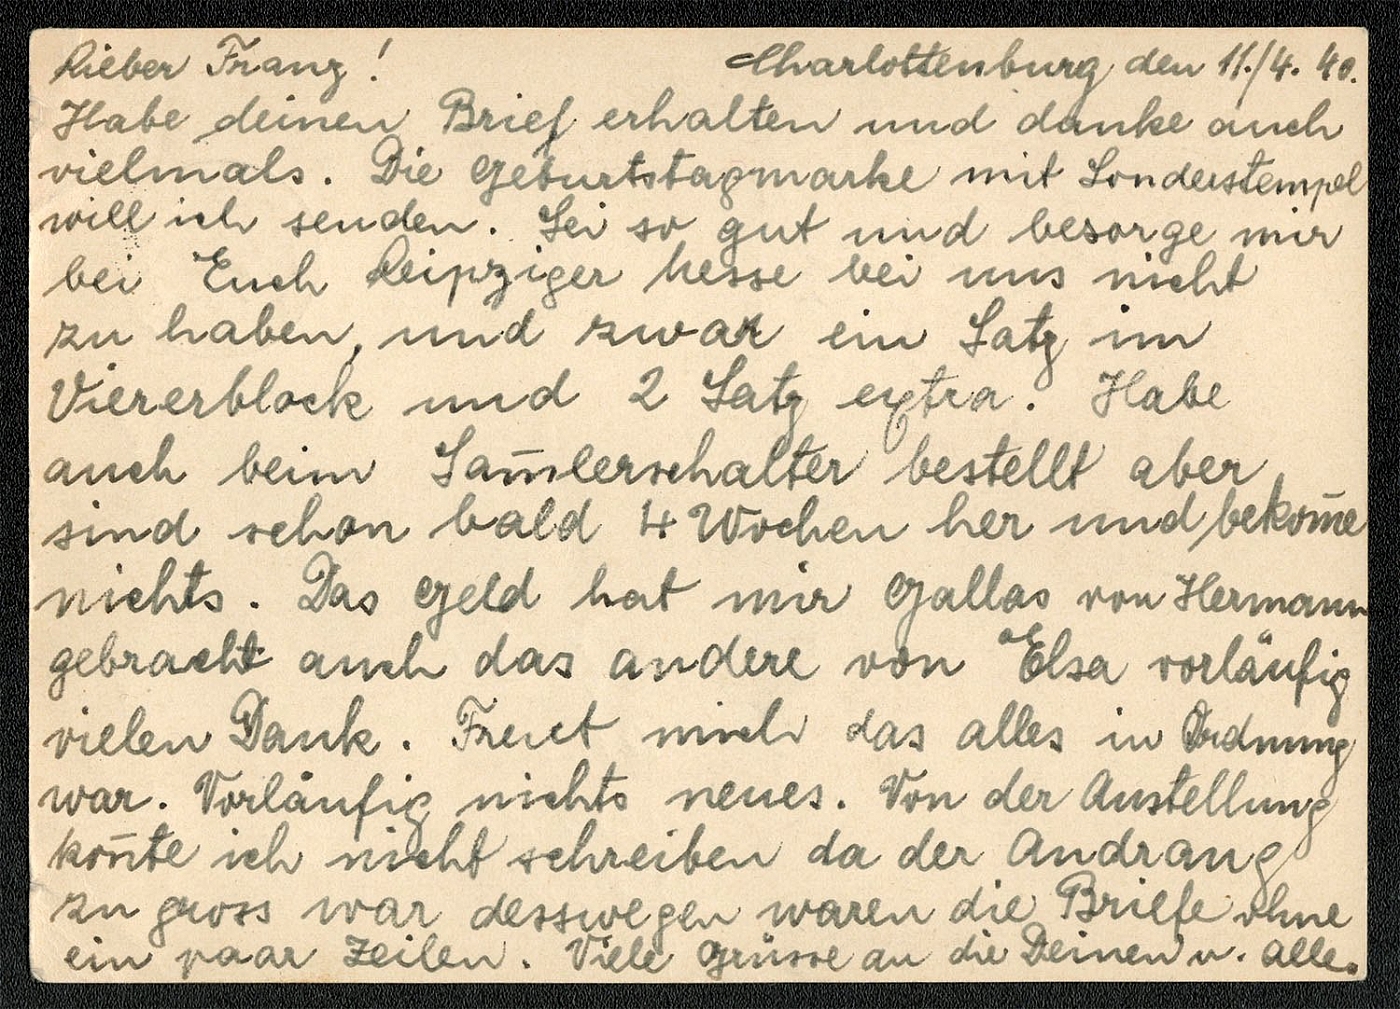 Lieber Franz! Charlottenburg den 11./4. 40.
Habe deinen Brief erhalten und danke auch
vielmals. Die Geburtstagmarke mit Sonderstempel
will ich senden. Sei so gut und besorge mir
bei Euch Leipziger Messe bei uns nicht
zu haben, und zwar ein Satz im
Viererblock und 2 Satz extra. Habe
auch beim Sam̄lerschalter bestellt aber
sind schon bald 4 Wochen her und bekom̄e
nichts. Das Geld hat mir Gallas von Hermann
gebracht auch das andere von Elsa vorläufig
vielen Dank. Freut mich das alles in Ordnung
war. Vorläufig nichts neues. Von der Austellung
kon̄te ich nicht schreiben da der Andrang
zu gross war desswegen waren die Briefe ohne
ein paar Zeilen. Viele Grüsse an die Deinen u. alle.